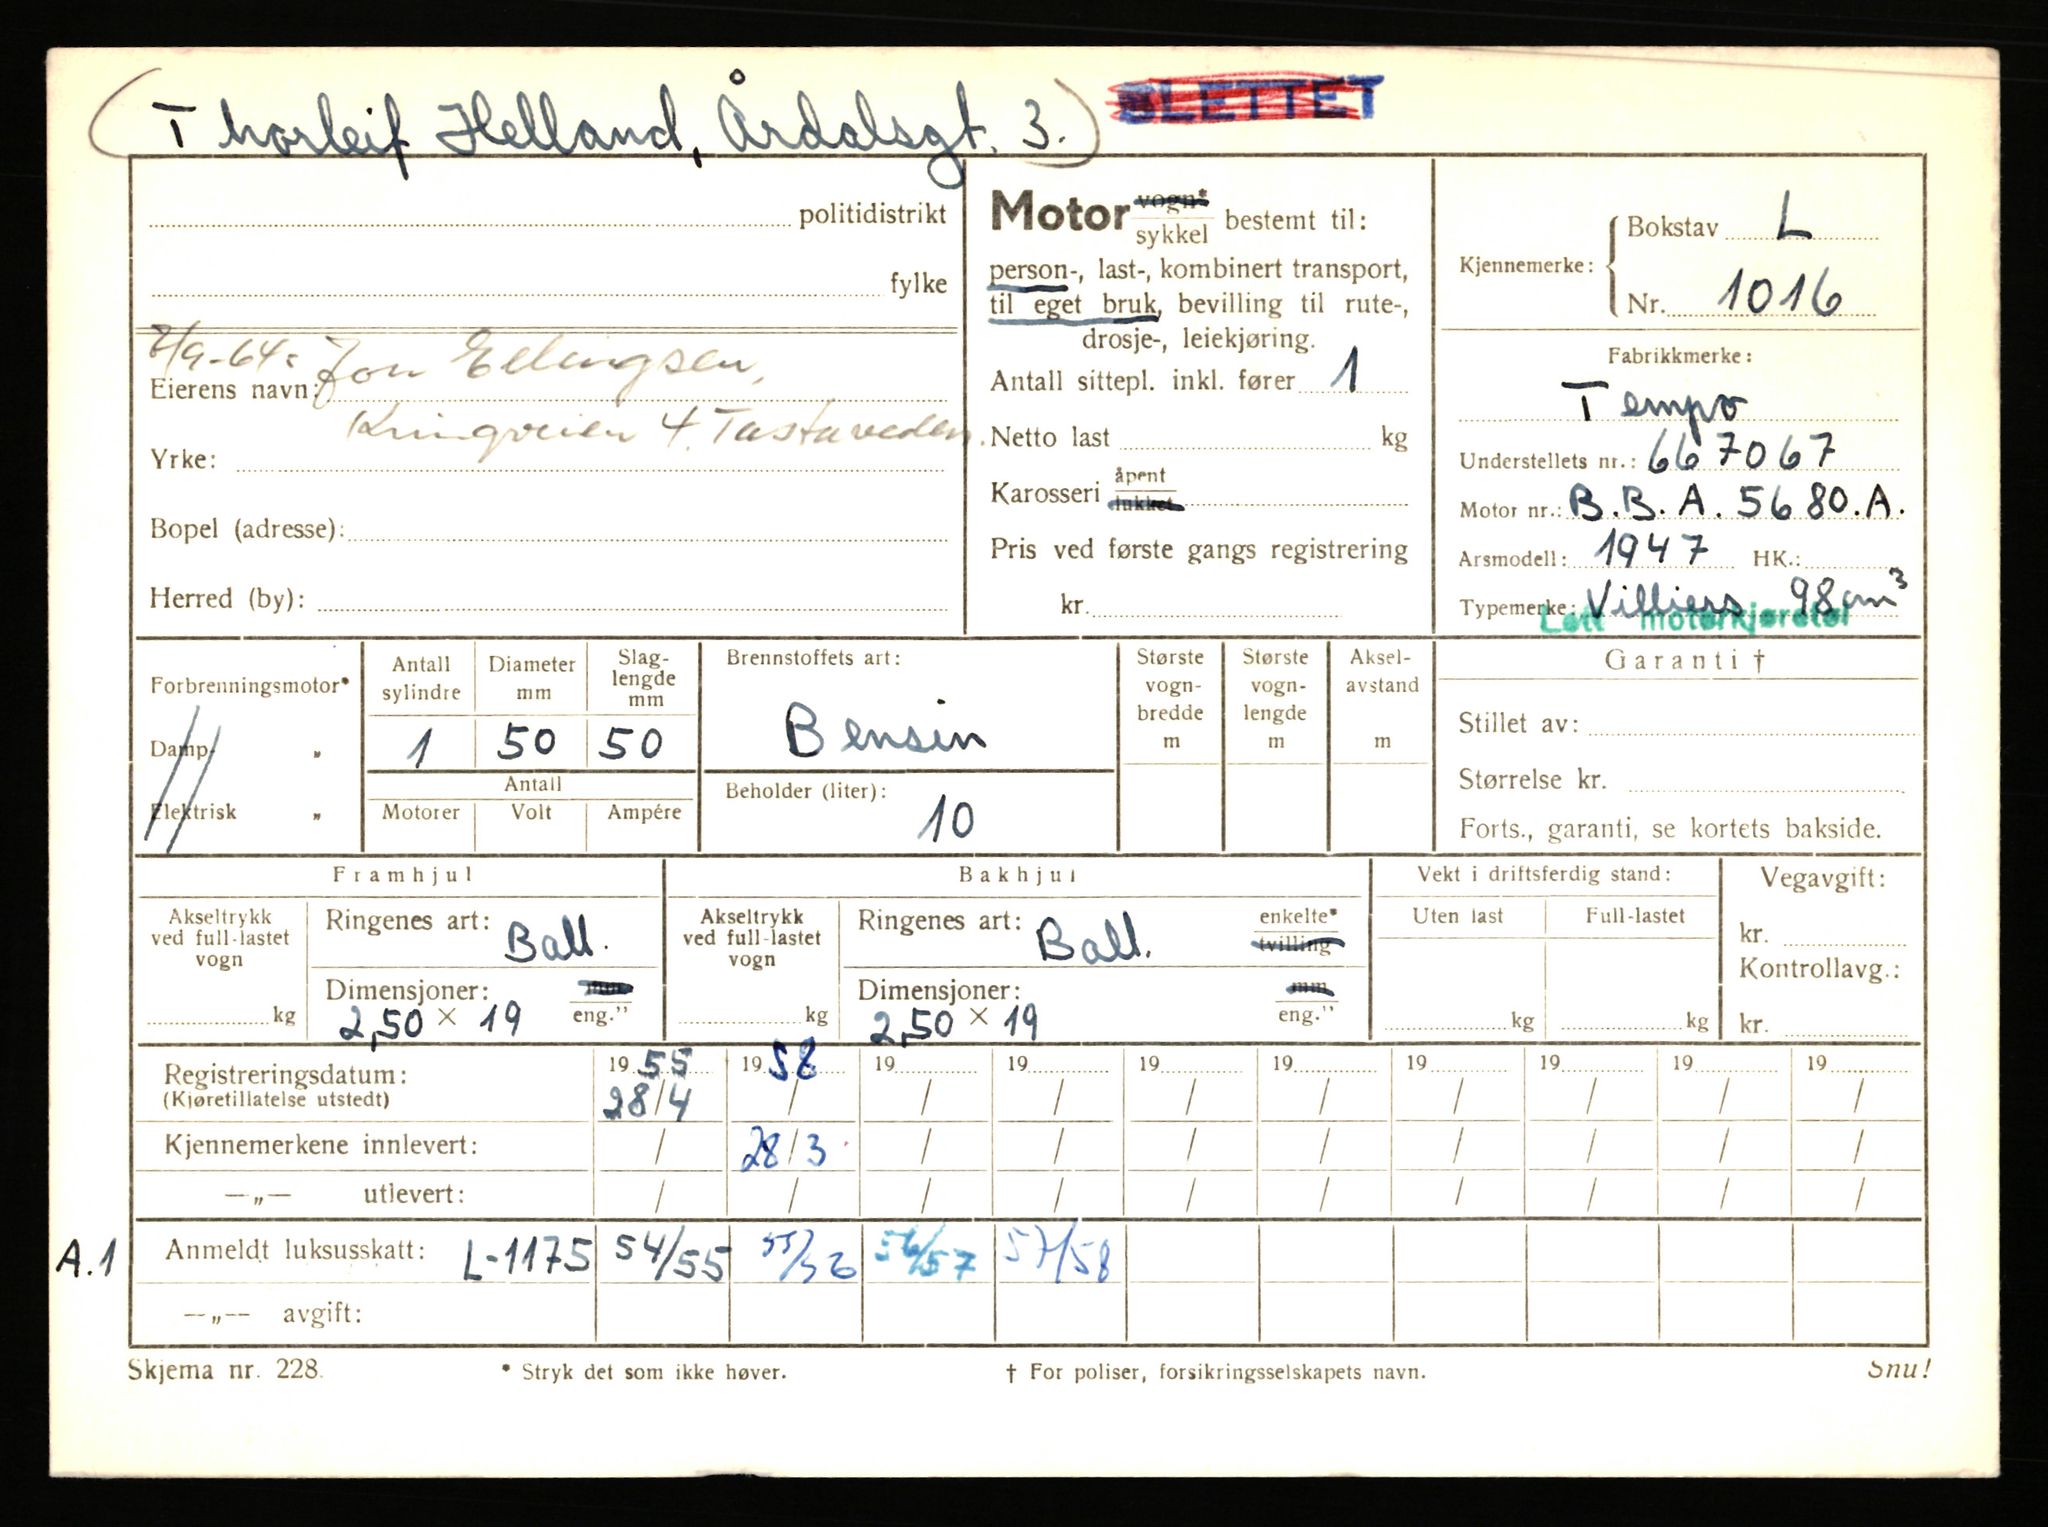 (Thorleif Helland, Årdalsgt. 3.) SLETTET
politidistrikt
fylke
Eierens navn: Jon Ellingsen,
4, Tastaveden.
Yrke:
Bopel (adresse):
Herred (by):
Motor vogn* sykkel bestemt til:
person-, last-, kombinert transport,
til eget bruk, bevilling til rute-,
drosje-, leiekjøring.
Antall sittepl. inkl. fører 1
Netto last kg
Karosseri åpent lukket
Pris ved første gangs registrering
kr.
Kjennemerke: Bokstav L
Nr. 1016
Fabrikkmerke:
Tempo
Understellets nr.: 667067
Motor nr.: B.B.A. 5680.A.
Arsmodell: 1947 HK.:
Typemerke: Villiers 98 cm³
Lett motorkjøretøi
Forbrenningsmotor*
Damp- „
Elektrisk „
Antall sylindre
Diameter mm
Slag-
lengde
mm
1 50 50
Antall
Motorer Volt Ampére
Brennstoffets art:
Bensin
Beholder (liter):
10
Største
vogn-
bredde
m
Største
vogn-
lengde
m
Aksel-
avstand
m
Garanti †
Stillet av:
Størrelse kr.
Forts., garanti, se kortets bakside.
Framhjul
Akseltrykk
ved full-lastet
vogn
kg
Ringenes art: Ball.
Dimensjoner: mm
2,50 × 19 eng."
Bakhjul
Akseltrykk
ved full-lastet
vogn
kg
Ringenes art: Ball. enkelte* tvilling
Dimensjoner: mm
2,50 × 19 eng."
Vekt i driftsferdig stand:
Uten last Full-lastet
kg kg
Vegavgift:
kr.
Kontrollavg.:
kr.
Registreringsdatum: 19 55 19 58 19 19 19 19 19 19 19 19
(Kjøretillatelse utstedt) 28/4 / / / / / / / / /
Kjennemerkene innlevert: / 28/3 / / / / / / / /
—„— utlevert: / / / / / / / / / /
A.1 Anmeldt luksusskatt: L-1175 54/55 55/56 56/57 57/58
—„— avgift:
Skjema nr. 228. * Stryk det som ikke høver. † For poliser, forsikringsselskapets navn. Snu!